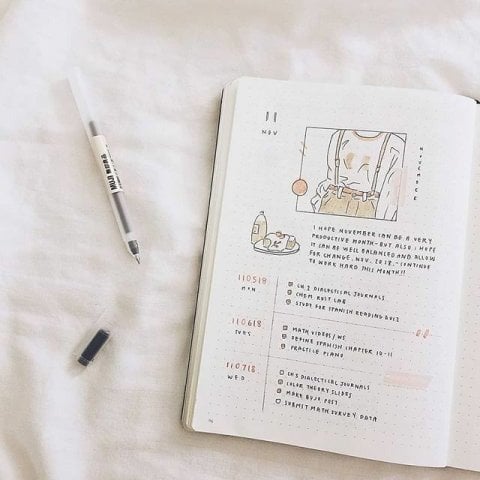 11
NOV
NOVEMBER
I HOPE NOVEMBER CAN BE A VERY
PRODUCTIVE MONTH - BUT ALSO, I HOPE
IT CAN BE WELL BALANCED AND ALLOW
FOR CHANGE. NOV. 2018. - CONTINUE
TO WORK HARD THIS MONTH!!
110518
MON
CH 2 DIALECTICAL JOURNALS
CHEM RUST LAB
STUDY FOR SPANISH READING QUIZ
110618
TUES
MATH VIDEOS / WS
DEFINE SPANISH CHAPTER 10-11
PRACTICE PIANO
110718
WED
CH 3 DIALECTICAL JOURNALS
COLOR THEORY SLIDES
MAKE BUJO POST
SUBMIT MATH SURVEY DATA
MUJI